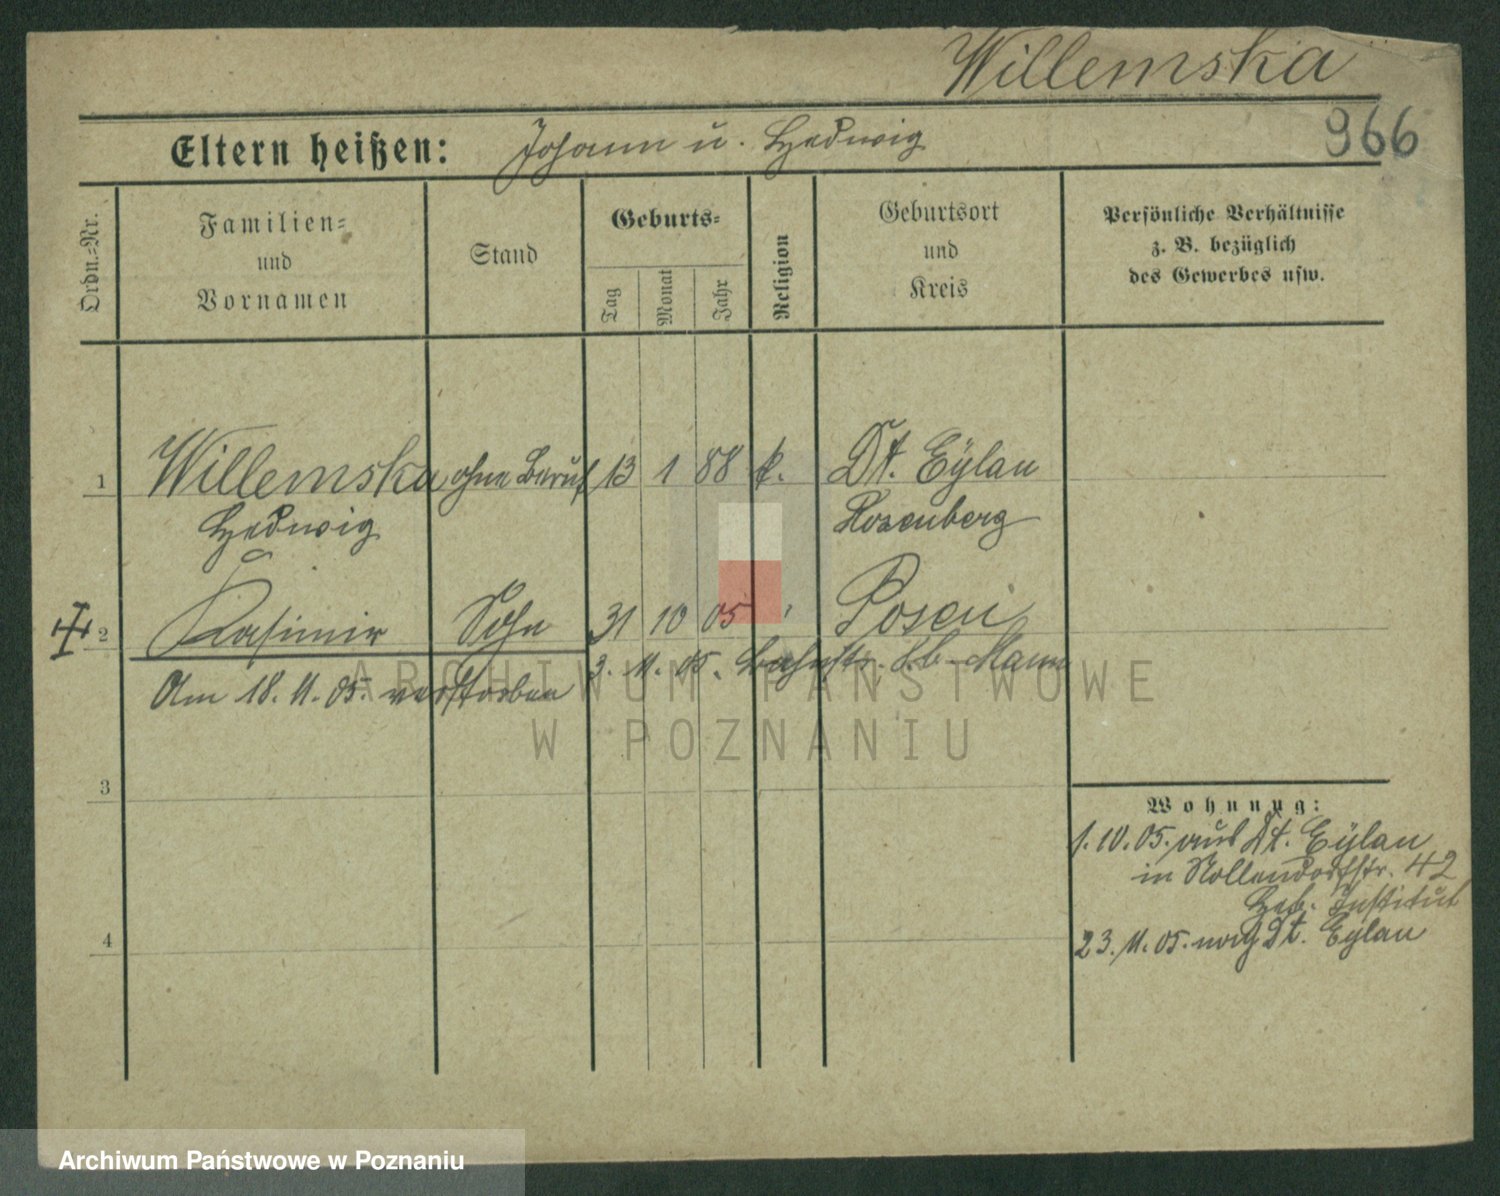 Willemska
966
Eltern heißen: Johann u. Hedwig
Ordn.-Nr.
Familien-
und
Vornamen
Stand
Geburts-
Tag
Monat
Jahr
Religion
Geburtsort
und
Kreis
Persönliche Verhältnisse
z. B. bezüglich
des Gewerbes usw.
1 Willemska ohne Beruf 13 1 88 k. Dt. Eylau
Hedwig Rosenberg
2 Kasimir Sohn 31 10 05 Posen
3. 11. 05.
Am 18. 11. 05. verstorben
ARCHIWUM PAŃSTWOWE
W POZNANIU
3
Wohnung:
1. 10. 05. aus Dt. Eylau
in Nollendorfstr. 42
Heb. Institut
4
23. 11. 05. nach Dt. Eylau
Archiwum Państwowe w Poznaniu